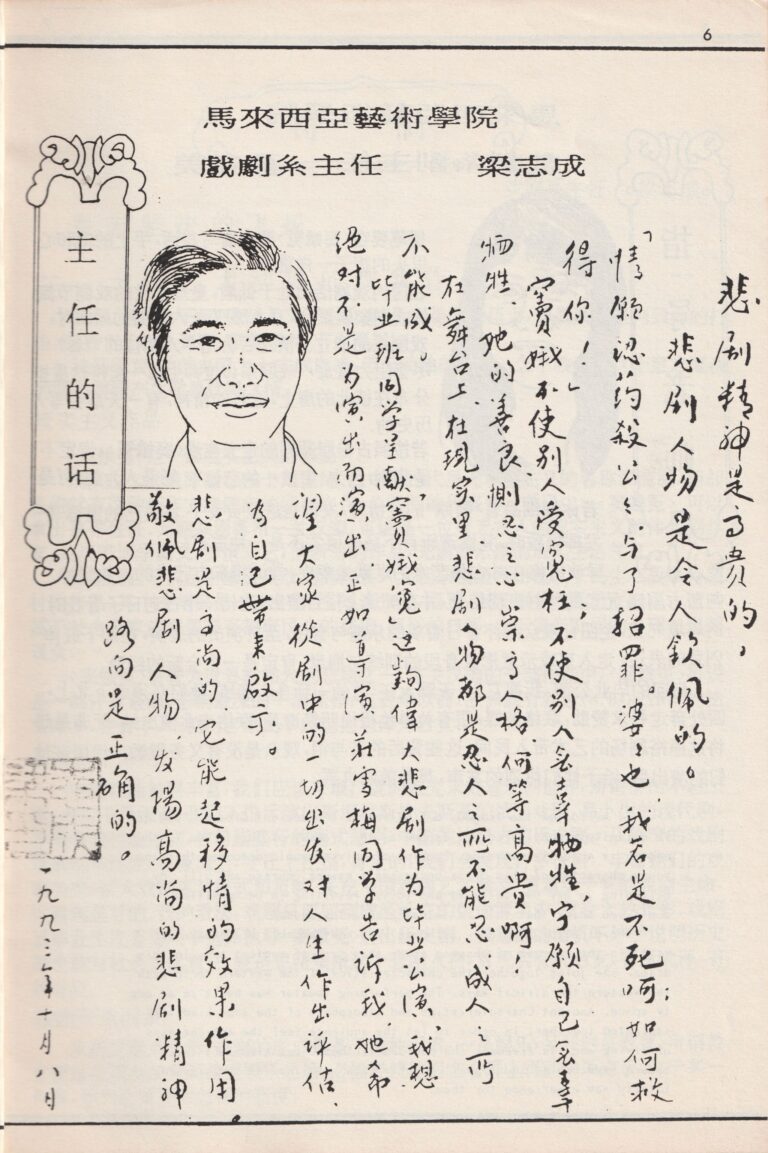 6
馬來西亞藝術學院
戲劇系主任 梁志成
主任的话
悲剧精神是高贵的。
悲剧人物是令人钦佩的。
「情愿认药殺公公、与了招罪。婆婆也,我若是不死呵;如何救
得你!」
竇娥不使别人受冤枉;不使别人无辜牺牲,宁愿自己无辜
牺牲、她的善良、恻忍之心、崇高人格、何等高贵啊!
在舞台上、在现实里、悲剧人物都是忍人之所不能忍、成人之所
不能成。
毕业班同学「竇娥冤」这齣偉大悲剧作为毕业公演。我想
绝对不是为演出而演出、正如导演莊雪梅同学告訴我她希
望大家從剧中的一切出发对人生作出评估、
为自己带来啟示。
悲剧是高尚的、它能起移情的效果作用
敬佩悲剧人物、发揚高尚的悲剧精神
路向是正确的。
一九九三年十月八日